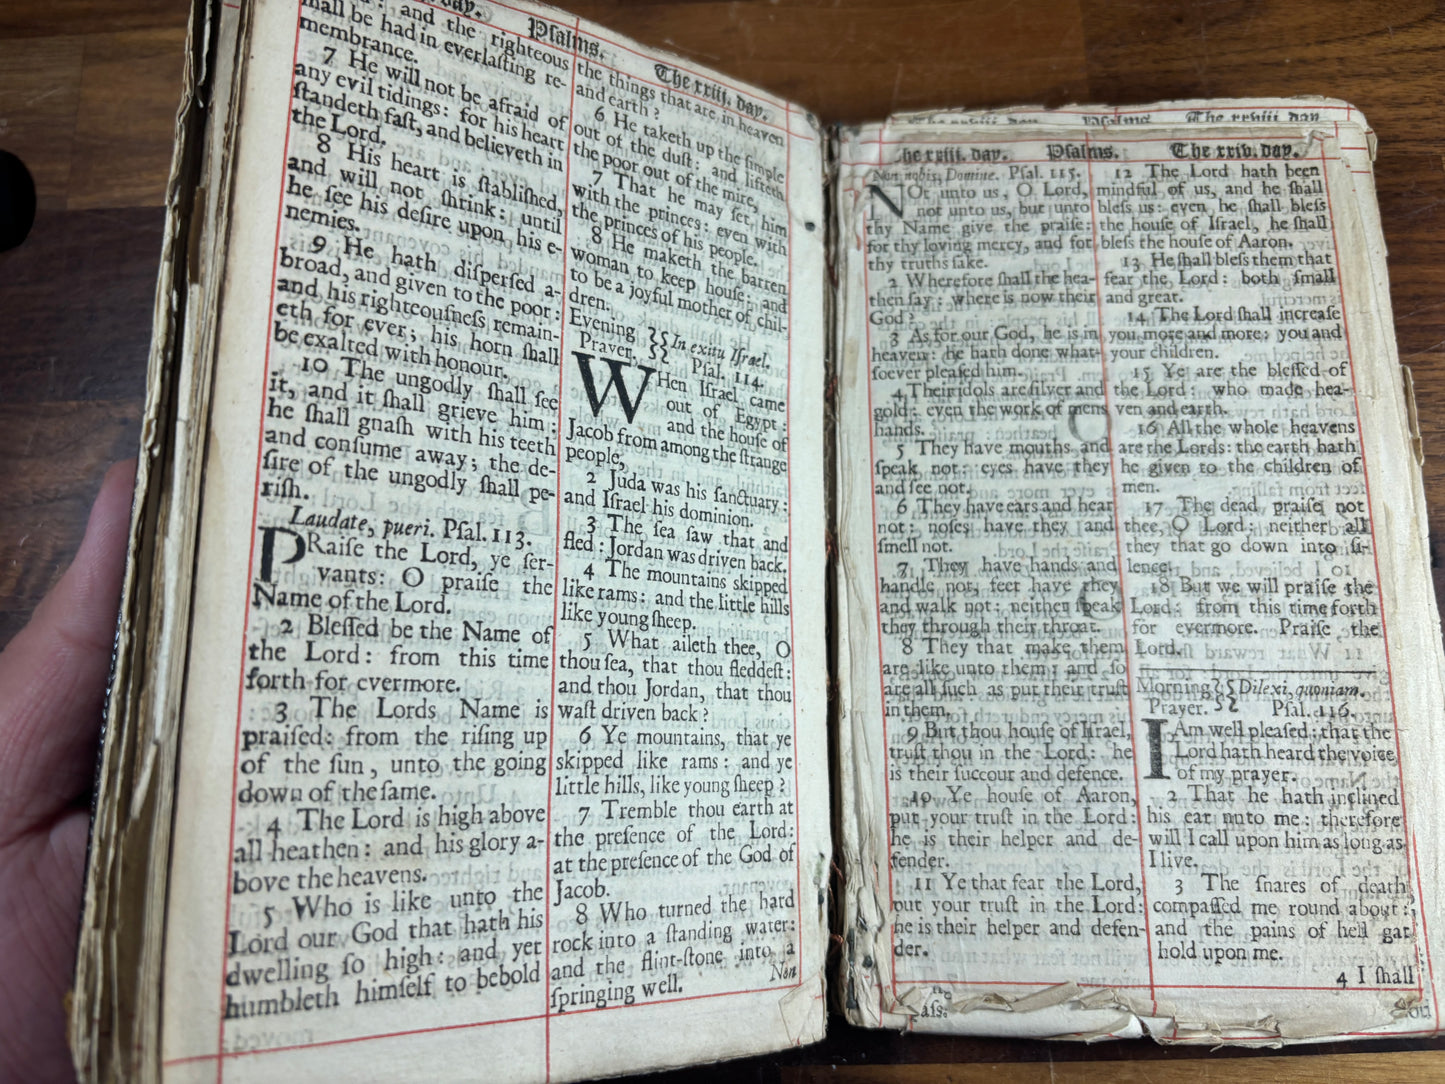 day. Psalms. The xxiii. day.
and the righteous
shall be had in everlaſting re-
membrance.
7 He will not be afraid of
any evil tidings: for his heart
ſtandeth faſt, and believeth in
the Lord.
8 His heart is ſtabliſhed,
and will not ſhrink: until
he ſee his deſire upon his e-
nemies.
9 He hath diſperſed a-
broad, and given to the poor:
and his righteouſneſs remain-
eth for ever; his horn ſhall
be exalted with honour.
10 The ungodly ſhall ſee
it, and it ſhall grieve him:
he ſhall gnaſh with his teeth
and conſume away; the de-
ſire of the ungodly ſhall pe-
riſh.
Laudate, pueri. Pſal. 113.
PRaiſe the Lord, ye ſer-
vants: O praiſe the
Name of the Lord.
2 Bleſſed be the Name of
the Lord: from this time
forth for evermore.
3 The Lords Name is
praiſed: from the riſing up
of the ſun, unto the going
down of the ſame.
4 The Lord is high above
all heathen: and his glory a-
bove the heavens.
5 Who is like unto the
Lord our God that hath his
dwelling ſo high: and yet
humbleth himſelf to behold
the things that are in heaven
and earth?
6 He taketh up the ſimple
out of the duſt: and lifteth
the poor out of the mire,
7 That he may ſet him
with the princes: even with
the princes of his people.
8 He maketh the barren
woman to keep houſe: and
to be a joyful mother of chil-
dren.
Evening In exitu Iſrael.
Prayer. Pſal. 114.
WHen Iſrael came
out of Egypt:
and the houſe of
Jacob from among the ſtrange
people,
2 Juda was his ſanctuary:
and Iſrael his dominion.
3 The ſea ſaw that and
fled: Jordan was driven back.
4 The mountains skipped
like rams: and the little hills
like young ſheep.
5 What aileth thee, O
thou ſea, that thou fleddeſt:
and thou Jordan, that thou
waſt driven back?
6 Ye mountains, that ye
skipped like rams: and ye
little hills, like young ſheep?
7 Tremble thou earth at
the preſence of the Lord:
at the preſence of the God of
Jacob.
8 Who turned the hard
rock into a ſtanding water:
and the flint-ſtone into a
ſpringing well.
Non
The xxviii. day. Pſalms. The xxviii. day.
The xxiii. day. Pſalms. The xxiv. day.
Non nobis, Domine. Pſal. 115.
NOt unto us, O Lord,
not unto us, but unto
thy Name give the praiſe:
for thy loving mercy, and for
thy truths ſake.
2 Wherefore ſhall the hea-
then ſay: where is now their
God?
3 As for our God, he is in
heaven: he hath done what-
ſoever pleaſed him.
4 Their idols are ſilver and
gold: even the work of mens
hands.
5 They have mouths, and
ſpeak not: eyes have they
and ſee not.
6 They have ears and hear
not: noſes have they and
ſmell not.
7 They have hands and
handle not, feet have they
and walk not: neither ſpeak
they through their throat.
8 They that make them
are like unto them; and ſo
are all ſuch as put their truſt
in them.
9 But thou houſe of Iſrael,
truſt thou in the Lord: he
is their ſuccour and defence.
10 Ye houſe of Aaron,
put your truſt in the Lord:
he is their helper and de-
fender.
11 Ye that fear the Lord,
put your truſt in the Lord:
he is their helper and defen-
der.
12 The Lord hath been
mindful of us, and he ſhall
bleſs us: even he ſhall bleſs
the houſe of Iſrael, he ſhall
bleſs the houſe of Aaron.
13 He ſhall bleſs them that
fear the Lord: both ſmall
and great.
14 The Lord ſhall increaſe
you more and more: you and
your children.
15 Ye are the bleſſed of
the Lord: who made hea-
ven and earth.
16 All the whole heavens
are the Lords: the earth hath
he given to the children of
men.
17 The dead praiſe not
thee, O Lord: neither all
they that go down into ſi-
lence.
18 But we will praiſe the
Lord: from this time forth
for evermore. Praiſe the
Lord.
Morning Dilexi, quoniam.
Prayer. Pſal. 116.
I Am well pleaſed: that the
Lord hath heard the voice
of my prayer.
2 That he hath inclined
his ear unto me: therefore
will I call upon him as long as
I live.
3 The ſnares of death
compaſſed me round about:
and the pains of hell gat
hold upon me.
4 I ſhall